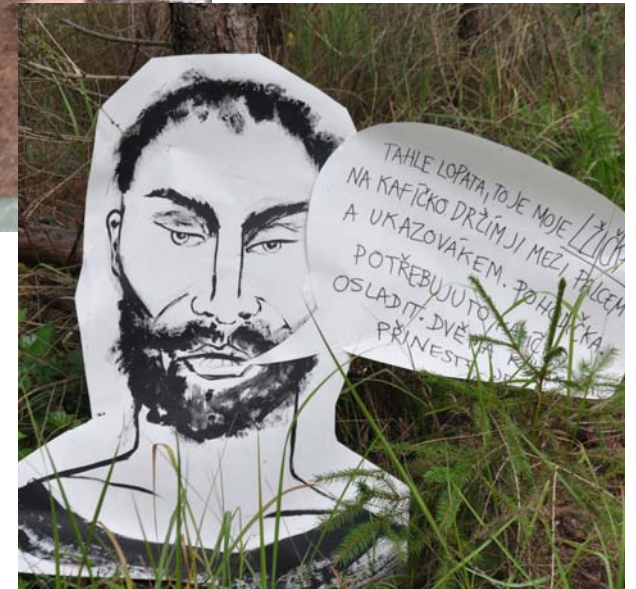 TAHLE LOPATA, TO JE MOJE
NA KAFÍČKO. DRŽÍM JI MEZI PALCEM
A UKAZOVÁKEM. POHODIČKA.
POTŘEBUJU TO
OSLADIT. DVĚ
PŘINEST